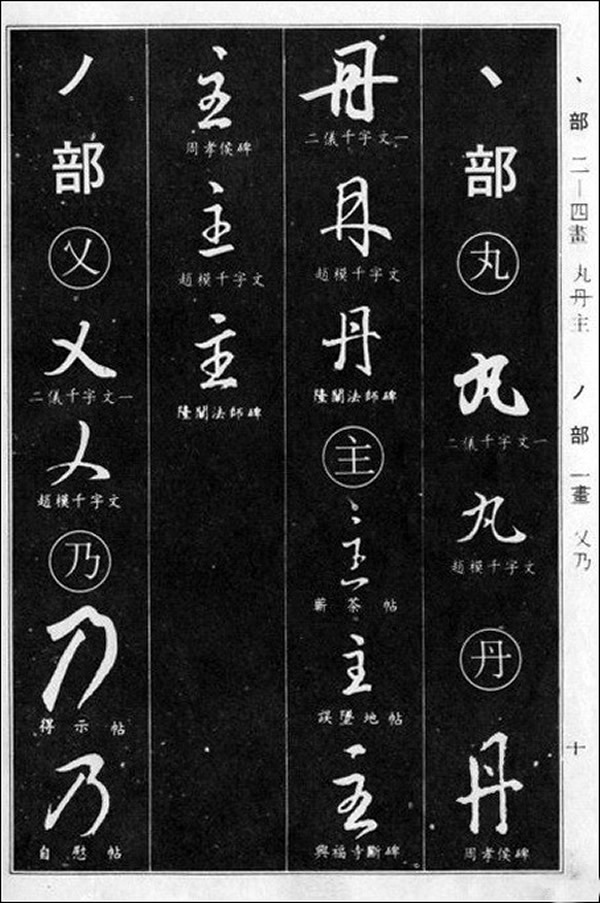 丶部 二—四畫 丸丹主 丿部 一畫 乂乃
十
丶部
丸
丸
二儀千字文一
丸
趙模千字文
丹
丹
周孝侯碑
丹
二儀千字文一
丹
趙模千字文
丹
隆闡法師碑
主
主
蘄茶帖
主
誤墮地帖
主
興福寺斷碑
主
周孝侯碑
主
趙模千字文
主
隆闡法師碑
丿部
乂
乂
二儀千字文一
乂
趙模千字文
乃
乃
得示帖
乃
自慰帖